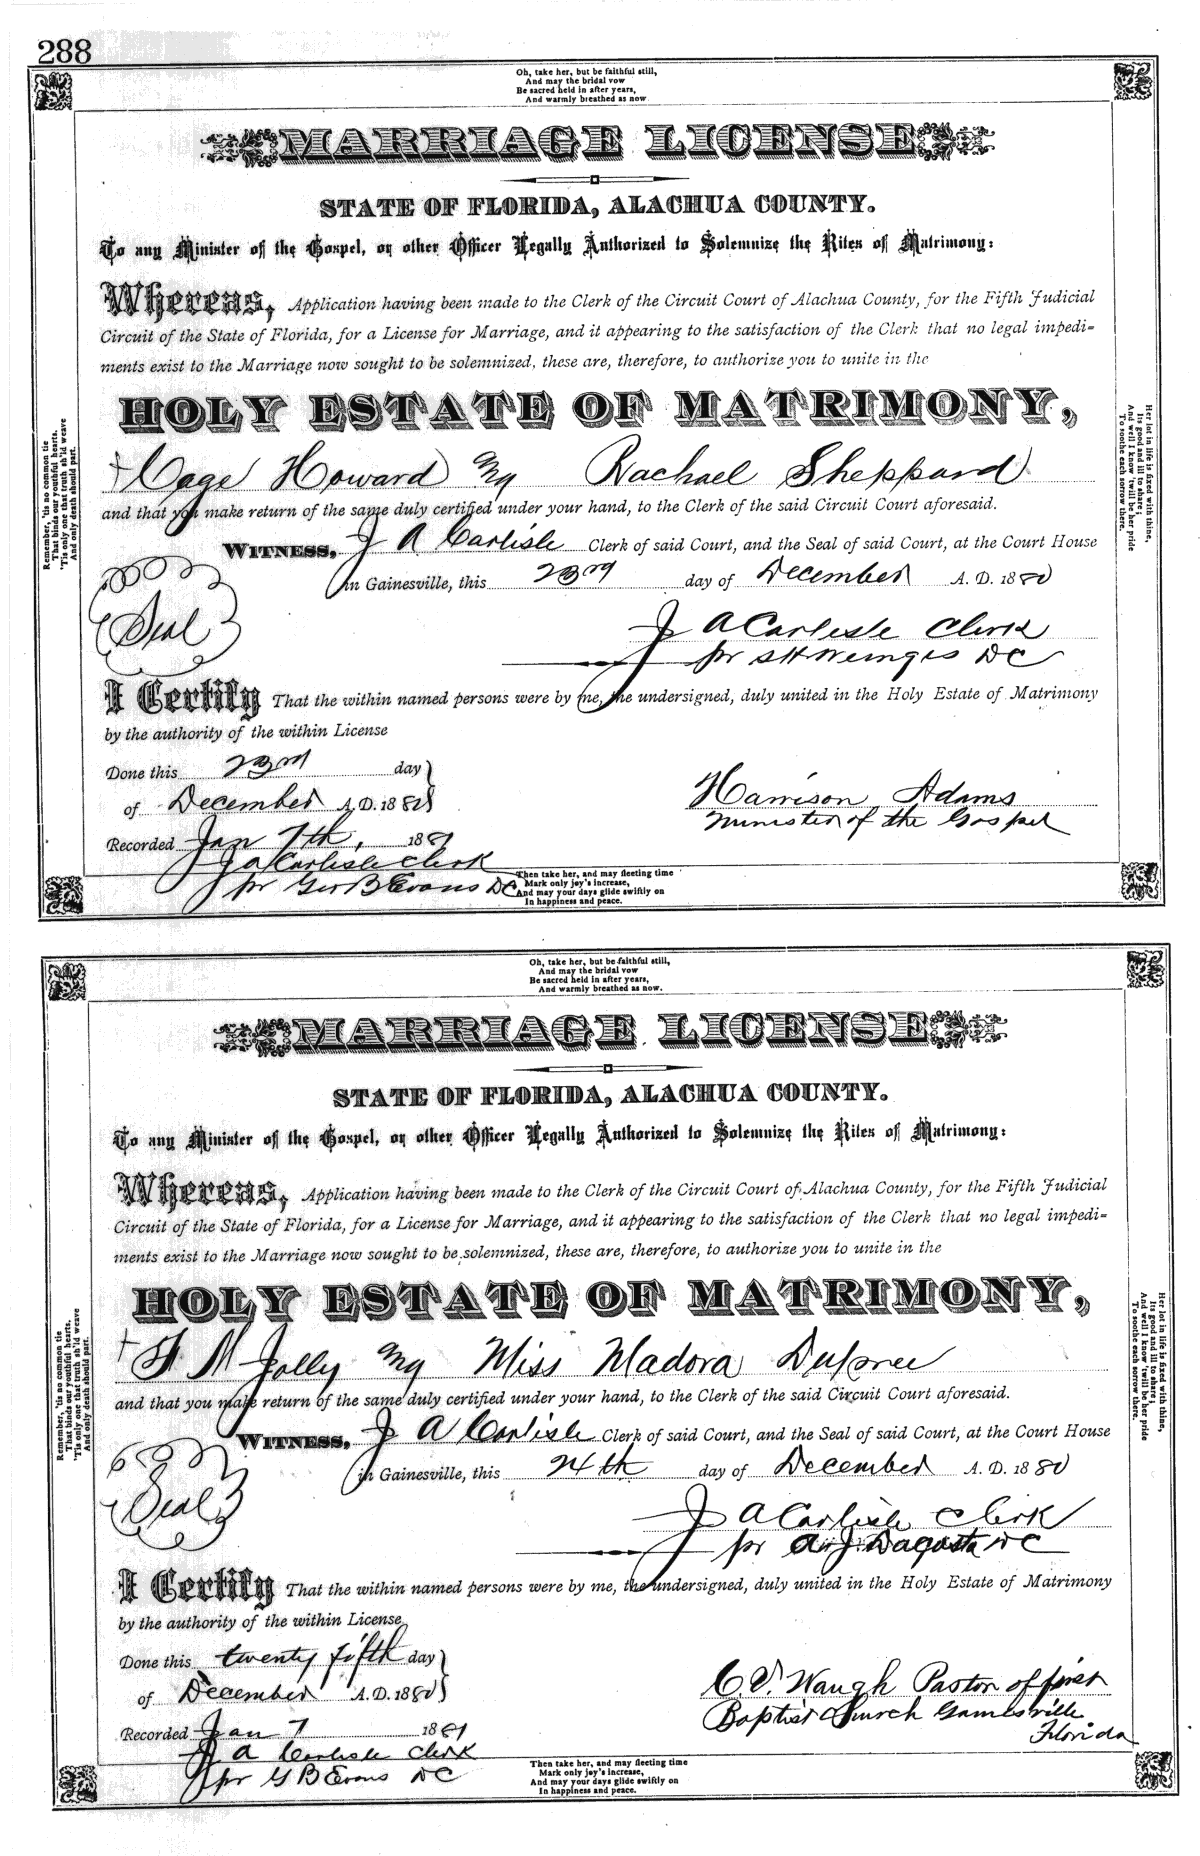 288
Oh, take her, but be faithful still,
And may the bridal vow
Be sacred held in after years,
And warmly breathed as now
MARRIAGE LICENSE
STATE OF FLORIDA, ALACHUA COUNTY.
To any Minister of the Gospel, or other Officer Legally Authorized to Solemnize the Rites of Matrimony:
Whereas, Application having been made to the Clerk of the Circuit Court of Alachua County, for the Fifth Judicial
Circuit of the State of Florida, for a License for Marriage, and it appearing to the satisfaction of the Clerk that no legal impedi-
ments exist to the Marriage now sought to be solemnized, these are, therefore, to authorize you to unite in the
HOLY ESTATE OF MATRIMONY,
Cage Howard Rachael Sheppard
and that you make return of the same duly certified under your hand, to the Clerk of the said Circuit Court aforesaid.
WITNESS, J A Carlisle Clerk of said Court, and the Seal of said Court, at the Court House
in Gainesville, this 23rd day of December A. D. 1880
Seal
J A Carlisle Clerk
pr DC
I Certify That the within named persons were by me, the undersigned, duly united in the Holy Estate of Matrimony
by the authority of the within License
Done this 23rd day
of December A.D. 1880
Harrison Adams
Minister of the Gospel
Recorded Jan 7th, 1881
J A Carlisle Clerk
pr Geo B Evans DC
Then take her, and may fleeting time
Mark only joy's increase,
And may your days glide swiftly on
In happiness and peace.
Remember, 'tis no common tie
That binds our youthful hearts,
'Tis only one that truth sh'ld weave
And only death should part.
Her lot in life is fixed with thine,
Its good and ill to share;
And well I know 'twill be her pride
To soothe each sorrow there.
Oh, take her, but be faithful still,
And may the bridal vow
Be sacred held in after years,
And warmly breathed as now.
MARRIAGE LICENSE
STATE OF FLORIDA, ALACHUA COUNTY.
To any Minister of the Gospel, or other Officer Legally Authorized to Solemnize the Rites of Matrimony:
Whereas, Application having been made to the Clerk of the Circuit Court of Alachua County, for the Fifth Judicial
Circuit of the State of Florida, for a License for Marriage, and it appearing to the satisfaction of the Clerk that no legal impedi-
ments exist to the Marriage now sought to be solemnized, these are, therefore, to authorize you to unite in the
HOLY ESTATE OF MATRIMONY,
M Jolly Miss Madora Dupree
and that you make return of the same duly certified under your hand, to the Clerk of the said Circuit Court aforesaid.
WITNESS, J A Carlisle Clerk of said Court, and the Seal of said Court, at the Court House
in Gainesville, this 24th day of December A. D. 1880
Seal
J A Carlisle Clerk
pr A. J. Dacosta DC
I Certify That the within named persons were by me, the undersigned, duly united in the Holy Estate of Matrimony
by the authority of the within License
Done this twenty fifth day
of December A.D. 1880
C. V. Waugh Pastor of first
Baptist Church Gainesville
Florida
Recorded Jan 7 1881
J A Carlisle Clerk
pr G B Evans DC
Then take her, and may fleeting time
Mark only joy's increase,
And may your days glide swiftly on
In happiness and peace.
Remember, 'tis no common tie
That binds our youthful hearts,
'Tis only one that truth sh'ld weave
And only death should part.
Her lot in life is fixed with thine,
Its good and ill to share;
And well I know 'twill be her pride
To soothe each sorrow there.